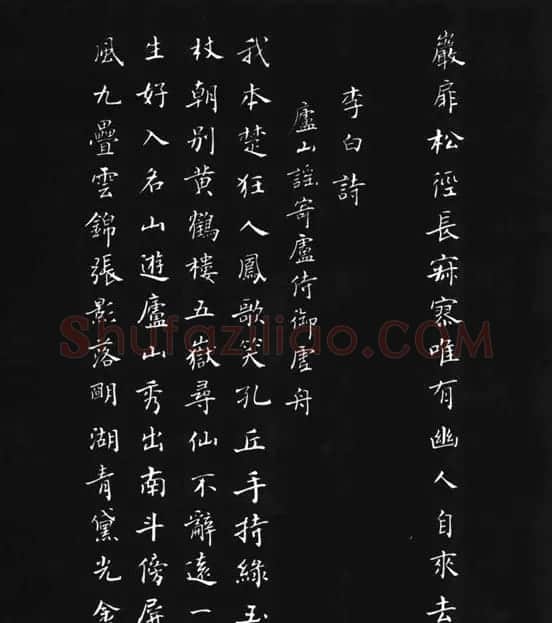 巖扉松徑長寂寥唯有幽人自來去
李白詩
廬山謠寄盧侍御虛舟
我本楚狂人鳳歌笑孔丘手持綠玉
杖朝別黃鶴樓五嶽尋仙不辭遠一
生好入名山遊廬山秀出南斗傍屏
風九疊雲錦張影落明湖青黛光金
Shufaziliao.COM